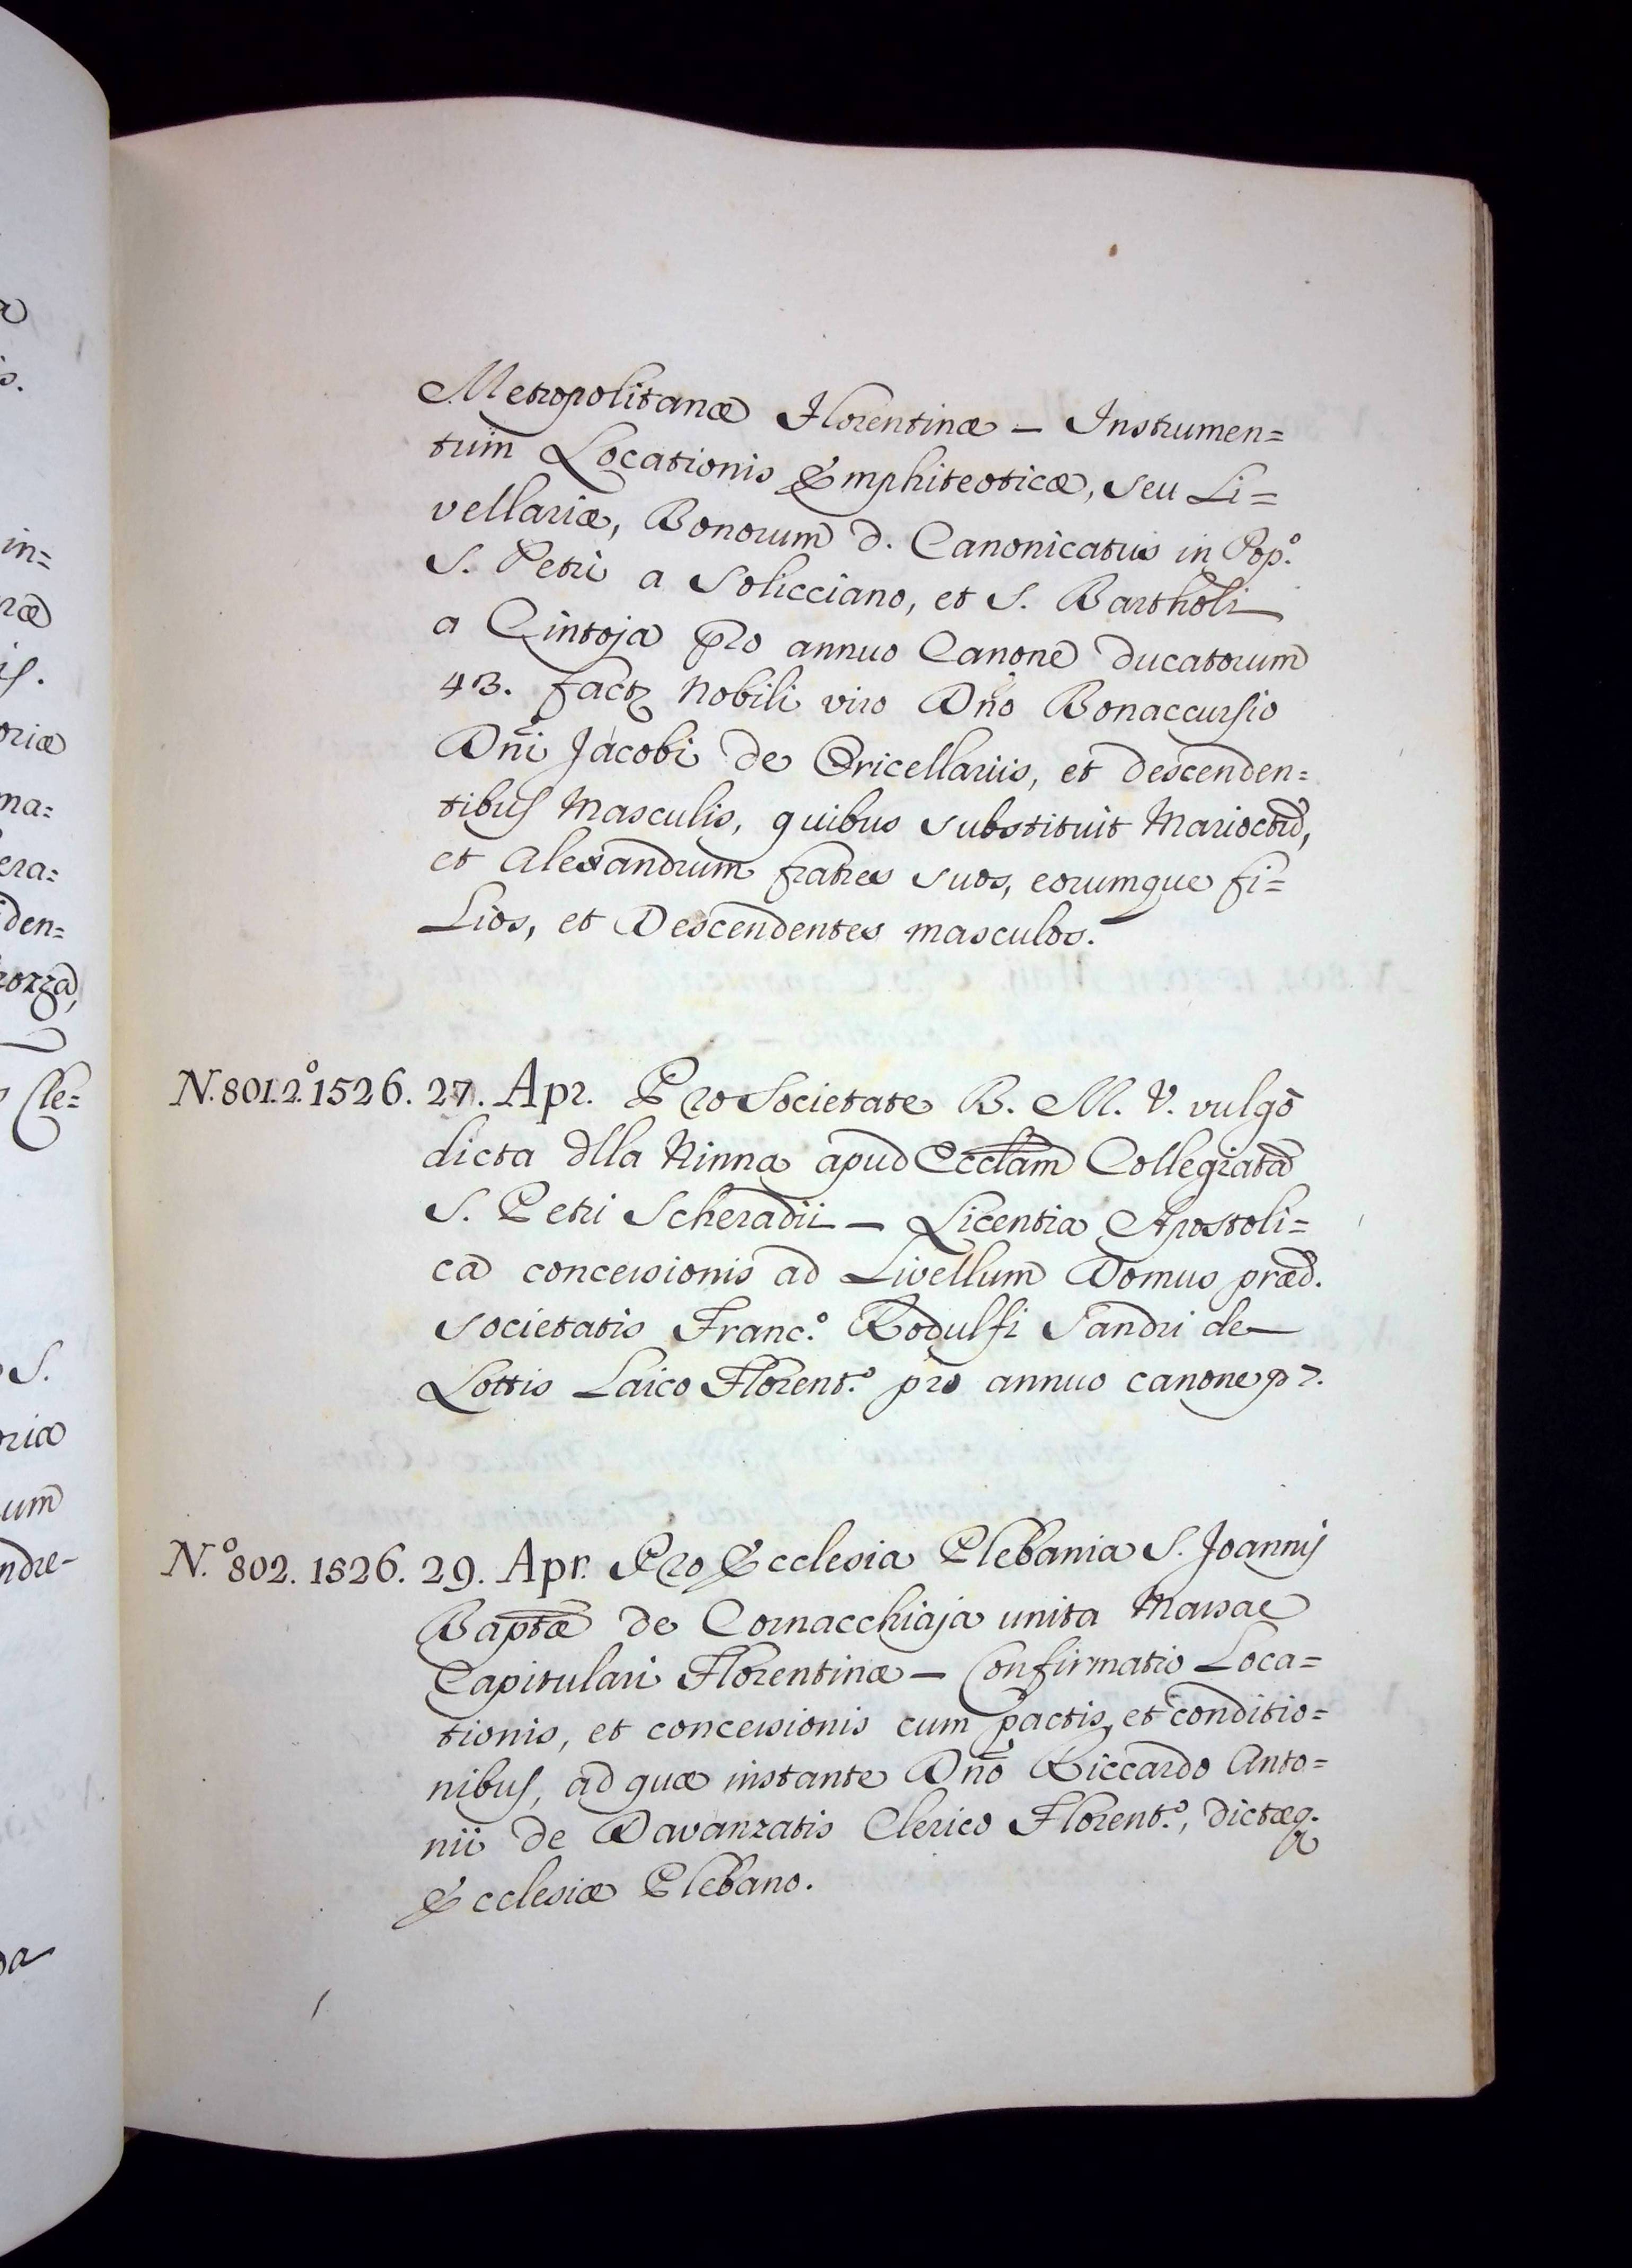 Metropolitanæ Florentinæ – Instrumen=
tum Locationis Emphiteoticæ, seu Li=
vellariæ, Bonorum d. Canonicatus in Pop.º
S. Petri a Solicciano, et S. Bartholi
a Cintoja pro annuo Canone ducatorum
43. fact Nobili viro Dño Bonaccursio
Dñi Jacobi de Oricellariis, et descenden=
tibus Masculis, quibus substituit Marioctũ,
et Alexandrum fratres suos, eorumque fi=
lios, et Descendentes masculos.
N. 801.2.º 1526. 27. Apr. Pro Societate B. M. V. vulgò
dicta dlla Ninna apud Ecclãm Collegiatã
S. Petri Scheradii – Licentia Apostoli=
ca concessionis ad Livellum Domus præd.
Societatis Franc.º Rodulfi Sandri de
Lottis Laico Florent.º pro annuo canone
N.º 802. 1526. 29. Apr. Pro Ecclesia Plebania S. Joannis
Baptæ de Cornacchiaja unita Massae
Capitulari Florentinæ – Confirmatio Loca=
tionis, et concessionis cum pactis, et conditio=
nibus, ad quæ instante Dño Riccardo Anto=
nii de Davanzatis Clerico Florent.º, dictæq.
Ecclesiæ Plebano.
in=
ræ
is.
oriæ
ma=
era=
den=
Cle=
S.
riæ
um
ndre-